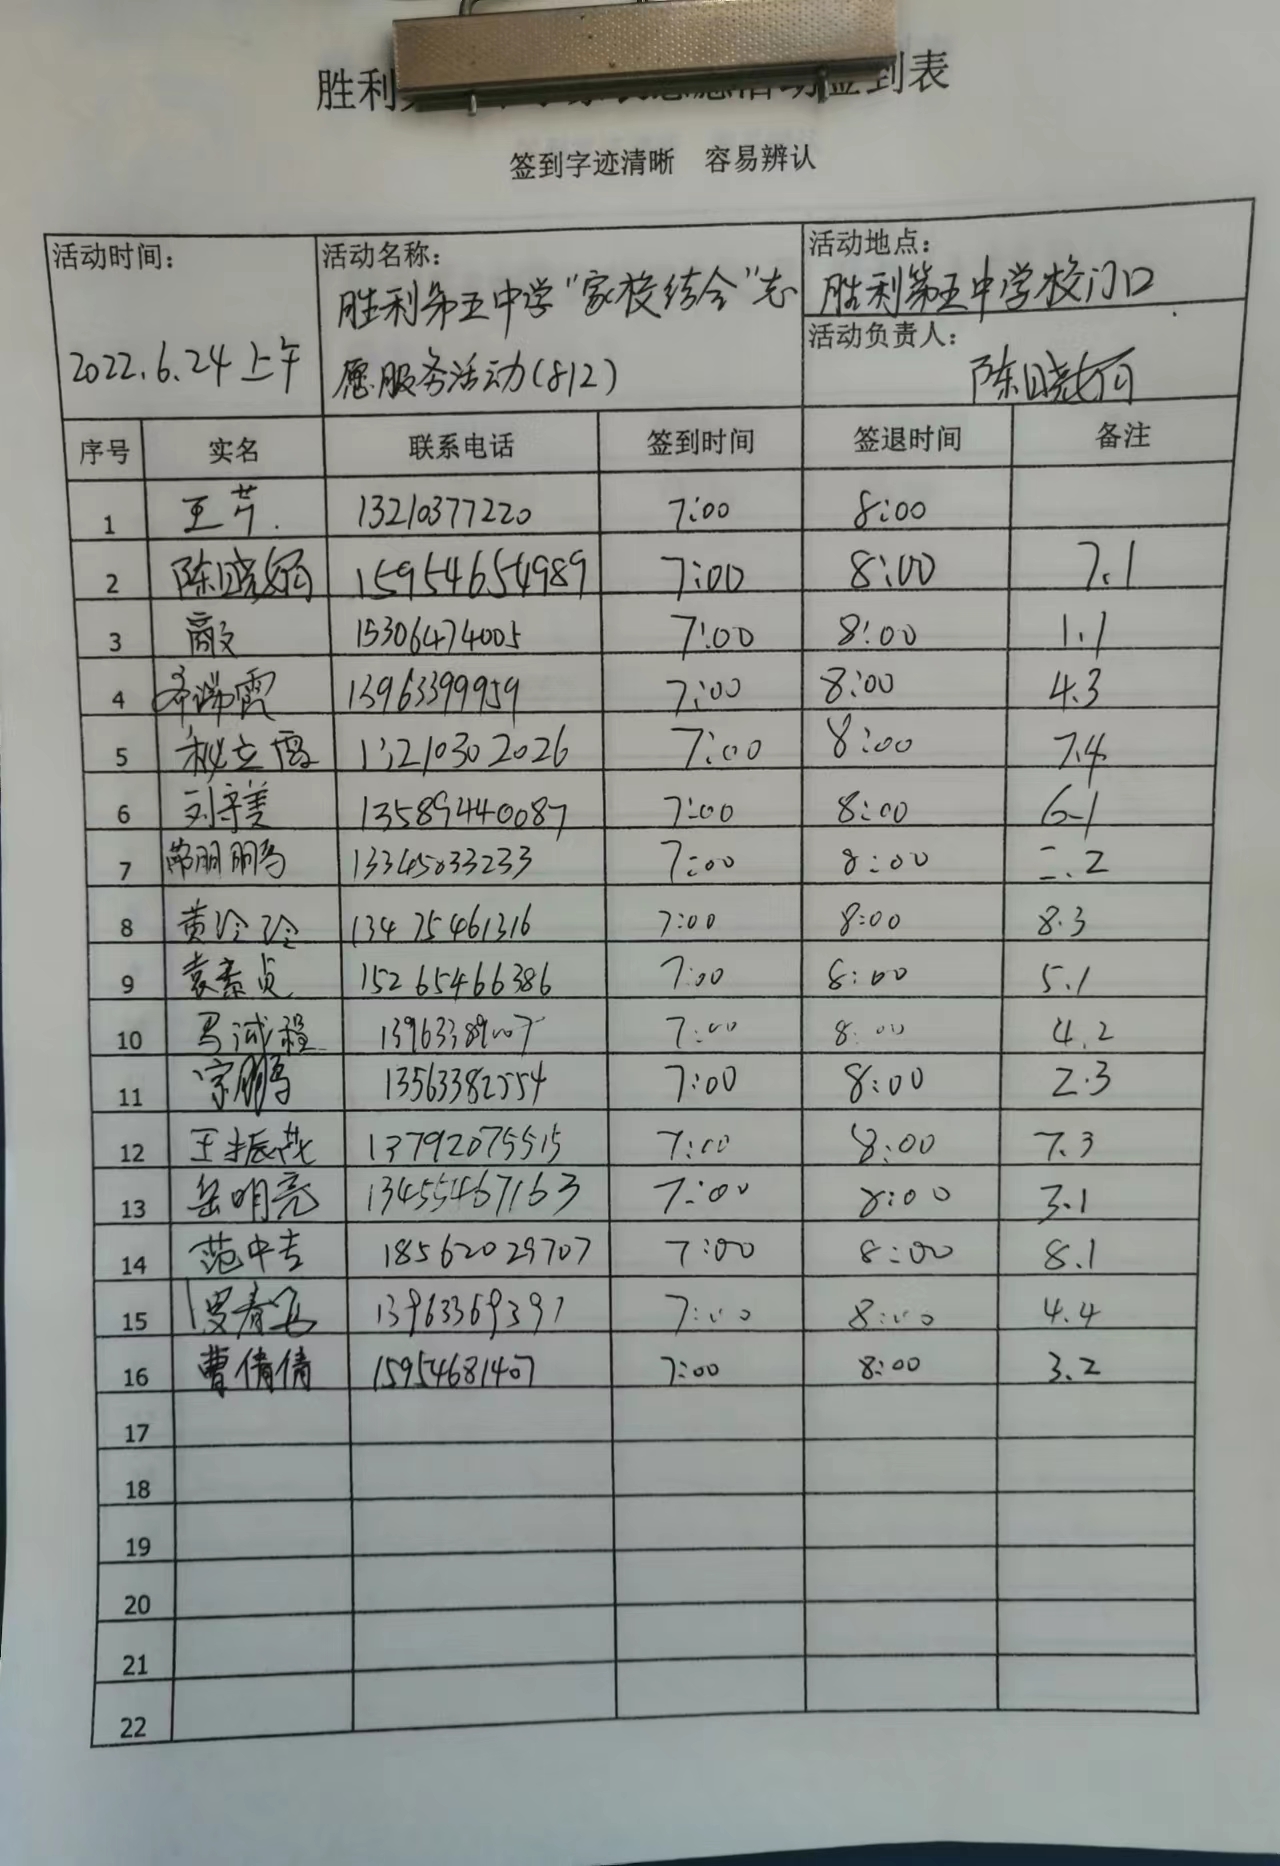 胜利
签到表
签到字迹清晰 容易辨认
活动时间:
2022.6.24上午
活动名称:
胜利第五中学“家校结合”志
愿服务活动(812)
活动地点:
胜利第五中学校门口
活动负责人:
陈晓婀
序号 实名 联系电话 签到时间 签退时间 备注
1 王芹 13210377220 7:00 8:00
2 陈晓婀 15954654989 7:00 8:00 7.1
3 15306474005 7:00 8:00 1.1
4 13963399959 7:00 8:00 4.3
5 秘立霞 7:00 8:00 7.4
6 刘守美 13589440087 7:00 8:00 6-1
7 13345033233 7:00 8:00 二.2
8 黄玲玲 13475461316 7:00 8:00 8.3
9 袁素贞 15265466386 7:00 8:00 5.1
10 马诚程 13963389007 7:00 8:00 4.2
11 宗鹏 13563382554 7:00 8:00 2.3
12 王振茂 13792075515 7:00 8:00 7.3
13 岳明亮 13455467163 7:00 8:00 3.1
14 范中吉 18562029707 7:00 8:00 8.1
15 13963369391 7:00 8:00 4.4
16 曹倩倩 15954681407 7:00 8:00 3.2
17
18
19
20
21
22